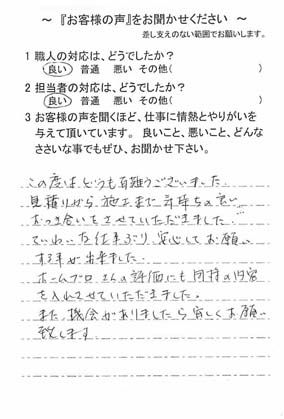 ～『お客様の声』をお聞かせください～
差し支えのない範囲でお願いします。
1 職人の対応は、どうでしたか？
良い 普通 悪い その他( )
2 担当者の対応は、どうでしたか？
良い 普通 悪い その他( )
3 お客様の声を聞くほど、仕事に情熱とやりがいを
与えて頂いています。良いこと、悪いこと、どんな
ささいな事でもぜひ、お聞かせ下さい。
この度はどうも有難うございました
見積りから施工まで気持ちの良い
おつき合いをさせていただきました。
ていねいな仕事ぶり、安心してお願い
する事が出来ました。
ホームプロさんの評価にも同様の内容
を入れさせていただきました。
また、機会がありましたら宜しくお願い
致します